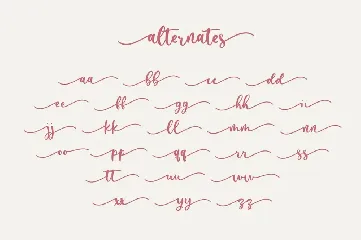 alternates
aa bb cc dd
ee ff gg hh ii
jj kk ll mm nn
oo pp qq rr ss
tt uu ww
xx yy zz